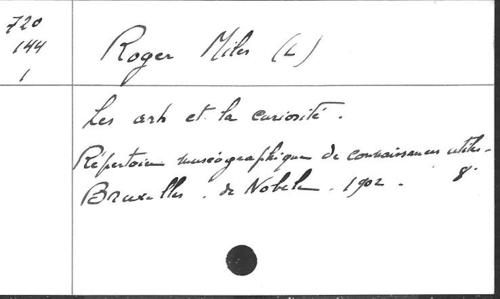 720
144
1
Roger Miles (L)
Les arts et la curiosité.
Répertoire muséographique de connaissances utiles.
Bruxelles. de Nobele. 1902. 8°